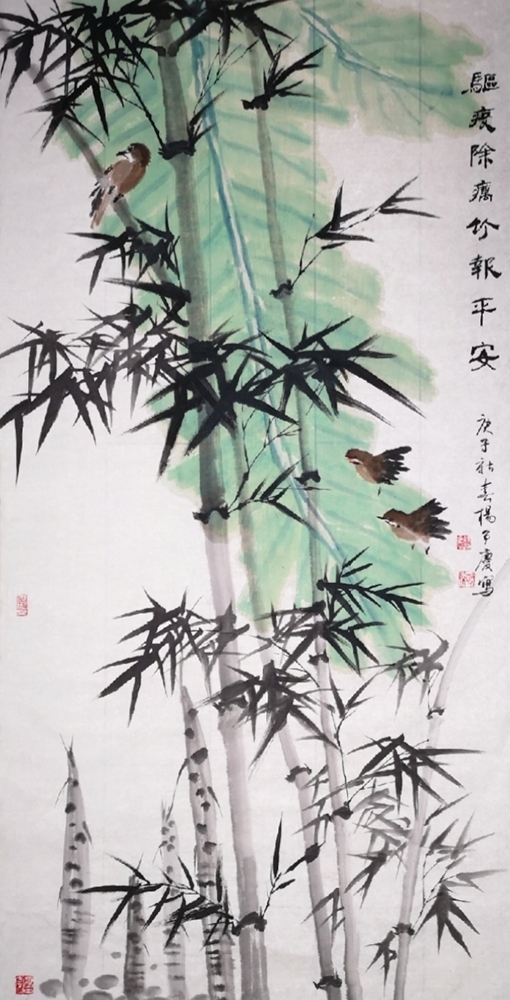 驅疫除癘竹報平安
庚子新春楊子慶寫